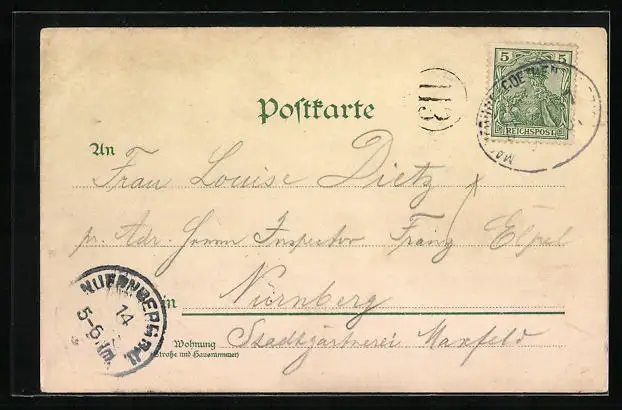 5 5
REICHSPOST
113
Postkarte
An
Frau Louise Dietz
pr. Adr. Herrn Inspector Franz Elpel
in Nürnberg
Wohnung
(Straße und Hausnummer)
Stadtgärtnerei Maxfeld
NUERNBERG
14
5-6